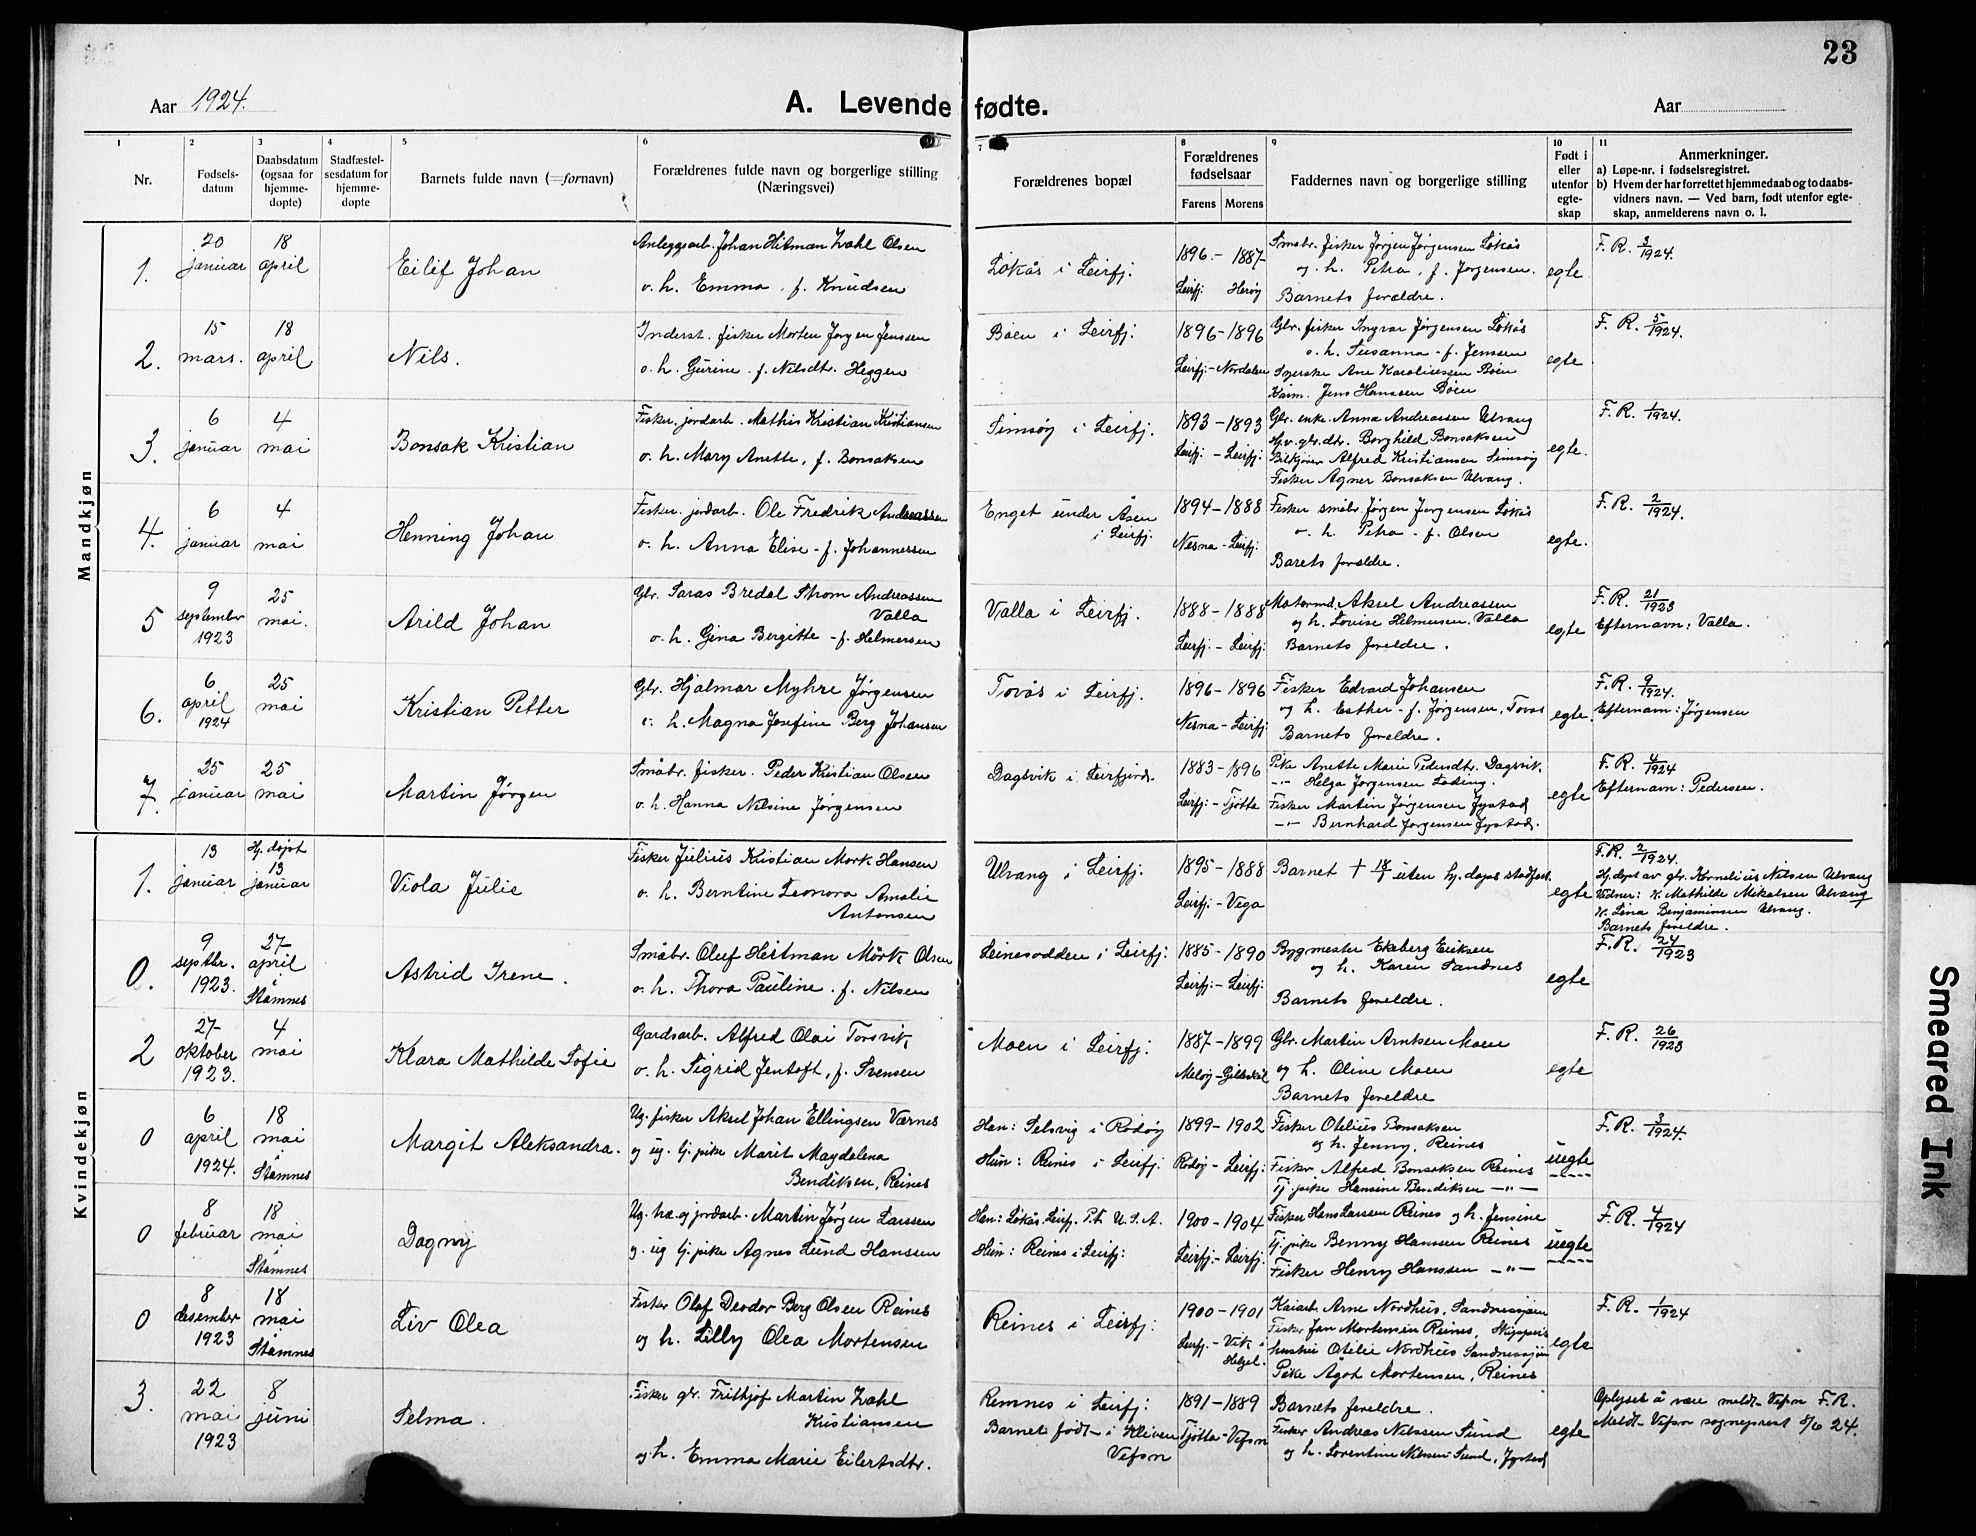 23
Aar 1924.
A. Levende fødte.
Aar
1
2
3
4
5
6
7
8
9
10
11
Nr.
Fødsels-
datum
Daabsdatum
(ogsaa for
hjemme-
døpte)
Stadfæstel-
sesdatum for
hjemme-
døpte
Barnets fulde navn (=fornavn)
Forældrenes fulde navn og borgerlige stilling
(Næringsvei)
Forældrenes bopæl
Forældrenes
fødselsaar
Farens
Morens
Faddernes navn og borgerlige stilling
Født i
eller
utenfor
egte-
skap
Anmerkninger.
a) Løpe-nr. i fødselsregistret.
b) Hvem der har forrettet hjemmedaab og to daabs-
vidners navn. — Ved barn, født utenfor egte-
skap, anmelderens navn o. l.
Mandkjøn
1.
20
januar
18
april
Eilif Johan
Anleggsarb. Johan Hitman Zahl Olsen
o. h. Emma, f. Knudsen
Løkås i Leirfj:
1896. - 1887
Leirfj: Herøy
Småbr. fisker Jørgen Jørgensen Løkås
og h. Petra, f. Jørgensen.
Barnets foreldre.
egte
F. R. 3/1924.
2.
15
mars.
18
april
Nils.
Inderst. fisker Morten Jørgen Jenssen
o. h. Gurine f. Nilsdtr. Heggen
Bøen i Leirfj:
1896 - 1896
Leirfj: - Nordalen
Gbr. fisker Ingvar Jørgensen Løkås
o. h. Susanna - f. Jenssen
Syerske Ane Karoliussen Bøen
Kårm. Jens Hanssen Bøen
egte
F. R. 5/1924.
3.
6
januar
4
mai
Bonsak Kristian
Fisker, jordarb. Mathis Kristian Kristiansen
o. h. Mary Anette, f. Bonsaksen
Simsøy i Leirfj.
1893 - 1893
Leirfj: - Leirfj:
Gbr. enke Anna Andreassen Ulvang
Hjv. gbr.dtr. Borghild Bonsaksen
Bilkjører Alfred Kristiansen Simsøy
Fisker Agner Bonsaksen Ulvang.
egte.
F. R. 1/1924.
4.
6
januar
4
mai
Henning Johan
Fisker. jordarb. Ole Fredrik Andreassen
o. h. Anna Elise - f. Johannessen
Enget under Åsen
i Leirfj.
1894 - 1888
Nesna - Leirfj:
Fisker småbr. Jørgen Jørgensen Løkås
o. h. Petra - f. Olsen
Barets foreldre.
egte.
F. R. 2/1924.
5
9
september
1923
25
mai.
Arild Johan
Gbr. Saras Bredal Strøm Andreassen
Valla
o. h. Gina Bergitte - f. Helmersen
Valla i Leirfj.
1888 - 1888
Leirfj: - Leirfj:
Matermd. Aksel Andreassen
og h. Lovise Helmersen, Valla
Barnets foreldre.
egte
F. R. 21/1923
Efternavn: Valla.
6.
6
april
1924
25
mai
Kristian Petter
Gbr. Hjalmar Myhre Jørgensen
o. h. Magna Josefine Berg Johansen
Tovås i Leirfj.
1896 - 1896
Nesna - Leirfj:
Fisker Edvard Johansen
og h. Esther - f. Jørgensen, Tovås
Barnets foreldre.
egte
F. R. 9/1924.
Efternavn: Jørgensen
7.
25
januar
25
mai
Martin Jørgen
Småbr. fisker. Peder Kristian Olsen
o. h. Hanna Nilsine Jørgensen
Dagsvik i Leirfjord.
1883 - 1896
Leirfj: - Tjøtta
Pike Anette Marie Pedersdtr. Dagsvik.
-"- Helga Jørgensen Løding.
Fisker Martin Jørgensen Jystad
-"- Bernhard Jørgensen Jystad.
egte
F. R. 4/1924
Efternavn: Pedersen.
Kvindekjøn
1.
13
januar
Hj. døpt
13
januar
Viola Julie
Fisker Julius Kristian Mørk Hansen
o. h. Berntine Leonora Amalie
Antonsen
Ulvang i Leirfj.
1895 - 1888
Leirfj: - Vega
Barnet † 18/1 uten hj. daps stadfest.
egte
F. R. 2/1924.
Hj. døpt av gbr. Kornelius Nilsen Ulvang
Vidner: K. Mathilde Mikalsen Ulvang
K. Lina Benjaminsen Ulvang.
Barnets foreldre.
0.
9
septbr.
1923.
27
april
Stamnes
Astrid Irene.
Småbr. Oluf Heitman Mørk Olsen
o. h. Thora Pauline. f. Nilsen
Leinesodden i Leirfj:
1885 - 1890
Leirfj: - Leirfj:
Bygmester Ekeberg Eriksen
og h. Karen Sandnes
Barnets foreldre.
egte
F. R. 24/1923
2
27
oktober
1923.
4
mai
Klara Mathilde Sofie
Gårdsarb. Alfred Olai Torsvik
o. h. Sigrid Jentoft, f. Svensen
Moen i Leirfj:
1887 - 1899
Meløy - Gildeskål
Gbr. Martin Arntsen Moen
og h. Oline Moen
Barnets foreldre
egte
F. R. 26/1923
0
6
april
1924.
18
mai
Stamnes
Margit Aleksandra.
Ug. fisker Aksel Johan Ellingsen Værnes
og ug. tj. pike Marit Magdalena
Bendiksen, Reines
Han: Selsvig i Rødøy
Hun: Reines i Leirfj.
1899 - 1902
Rødøy - Leirfj:
Fisker Otelius Bonsaksen
og h. Jenny, Reines
Fisker Alfred Bonsaksen Reines
Tj. pike Hansine Bendiksen -"-
uegte
F. R. 3/1924.
0
8
februar
18
mai
Stamnes
Dagny
Ug. hæ. og jordarb. Martin Jørgen Larssen
o. ug tj. pike Agnes Lund Hanssen
Han: Løkås, Leirfj. P.t. U. S. A.
Hun: Reines i Leirfj:
1900 - 1904
Leirfj: - Leirfj:
Fisker Hans Larssen Reines og h. Jensine
Tj. pike Benny Hanssen Reines
Fisker Henry Hanssen -"-
uegte
F. R. 4/1924
0
8
desember
1923
18
mai
Stamnes
Liv Olea
Fisker Olaf Deodor Berg Olsen Reines
og h. Lilly Olea Mortensen
Reines i Leirfj:
1900 - 1901
Leirfj. - Vik i
Helgel.
Kaiarb. Arne Nordhus, Sandnessjøen
Fisker Jan Mortensen Reines, Skippers
hustru Otilie Nordhus Sandnessjøen
Pike Ågot Mortensen, Reines
egte
F. R. 1/1924
3.
22
mai
1923
8
juni
Selma.
Fisker gbr. Frithjof Martin Zahl
Kristiansen
og h. Emma Marie Eilertsdtr.
Remnes i Leirfj:
Barnet født i Kleiven
Vefsn
1891 - 1889
Tjøtta - Vefsn
Barnets foreldre.
Fisker Andreas Nilssen Sund
og h. Lorentine Nilssen Sund, Jystad
egte
Oplyses å være meldt Vefsn F. R.
Meldt Vefsn sogneprest 8/6 24.
Smeared Ink